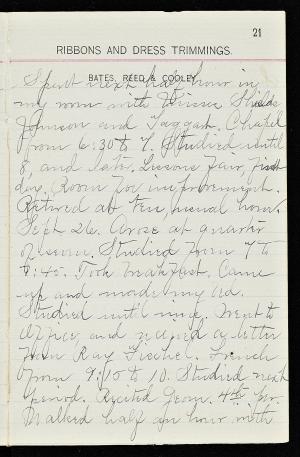 21
RIBBONS AND DRESS TRIMMINGS.
BATES, REED & COOLEY
Spent next half hour in
my room with Shields
Johnson and Taggart. Chapel
from 6:30 to 7. Studied until
8, and later. Lessons fair, first
day. Room for improvement.
Retired at ten, usual hour.
Sept 26. Arose at quarter
of seven. Studied from 7 to
7:45. Took breakfast. Came
up and made my bed.
Studied until nine. Went to
office, and received a letter
from Ray Fischel. French
from 9:10 to 10. Studied next
period. Recited Geom. 4th hr.
Walked half an hour with